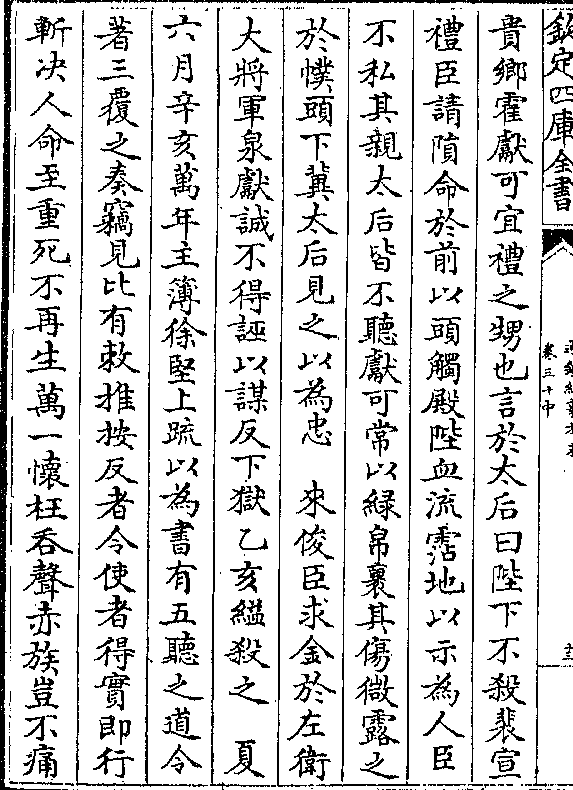 欽定四庫全書
卷三十中
貴鄉霍獻可宜禮之甥也言於太后曰陛下不殺裴宣
禮臣請隕命於前以頭觸殿陛血流霑地以示為人臣
不私其親太后皆不聽獻可常以緑帛裹其傷微露之
於幞頭下冀太后見之以為忠　來俊臣求金於左衛
大將軍泉獻誠不得誣以謀反下獄乙亥縊殺之　夏
六月辛亥萬年主簿徐堅上疏以為書有五聽之道令
著三覆之奏竊見比有敕推按反者令使者得實即行
斬决人命至重死不再生萬一懷枉吞聲赤族豈不痛